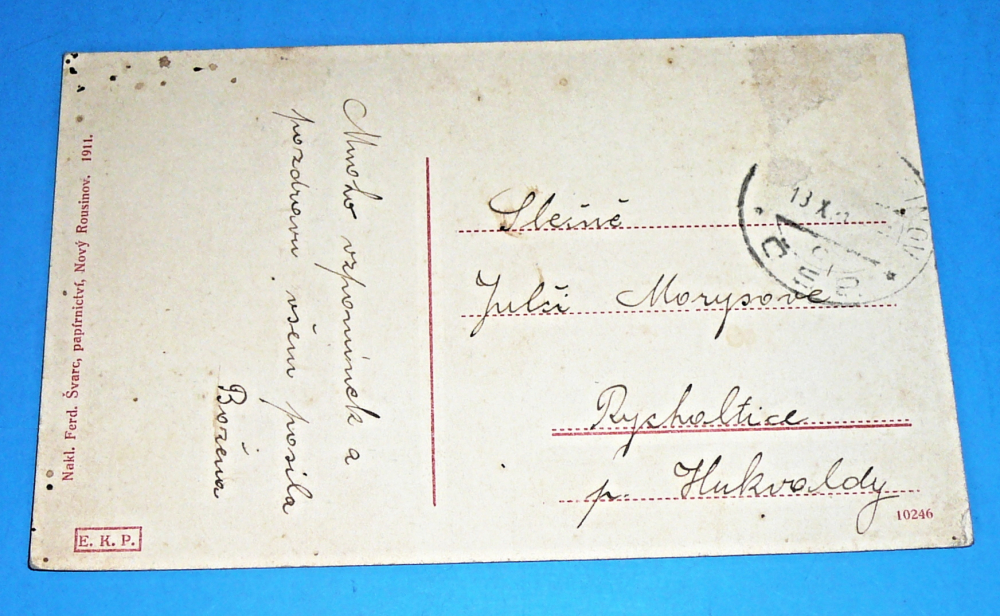 Mnoho vzpomínek a
pozdravu všem posílá
Božena
Slečně
Julči Morysove
Rychaltice
p. Hukvaldy
13 X
10246
Nakl. Ferd. Švarc, papírnictví, Nový Rousinov. 1911.
E. K. P.